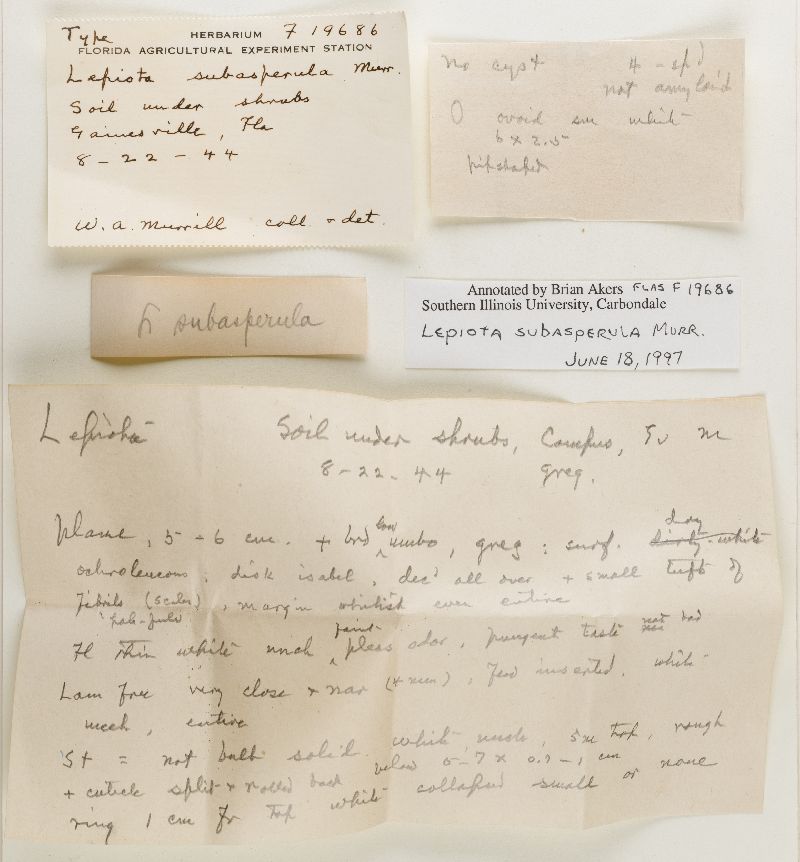 Type HERBARIUM F 19686
FLORIDA AGRICULTURAL EXPERIMENT STATION
Lepiota subasperula Murr.
Soil under shrubs
Gainesville, Fla
8 - 22 - 44
W. A. Murrill coll & det.
No cyst 4 - sp'd
not amyloid
O ovoid sm white
6 x 2.5
pipshaped
subasperula
Annotated by Brian Akers FLAS F 19686
Southern Illinois University, Carbondale
LEPIOTA SUBASPERULA MURR.
JUNE 18, 1997
Lepiota Soil under shrubs, Campus,
8 - 22 - 44 greg.
Plane, 5 - 6 cm. + brd low umbo, greg; surf. dirty-white
ochroleucous, disk isabel, dec'd all over + small tufts of
fibrils (scales), margin whitish even entire
Fl thin white unch faint pleas odor, pungent taste not bad
Lam free very close & nar, few inserted, white
unch, entire
St = not bulb solid white, unch, sm top, rough
+ cuticle split & rolled back below 5-7 x 0.7-1 cm
ring 1 cm fr top white collapsed small or none